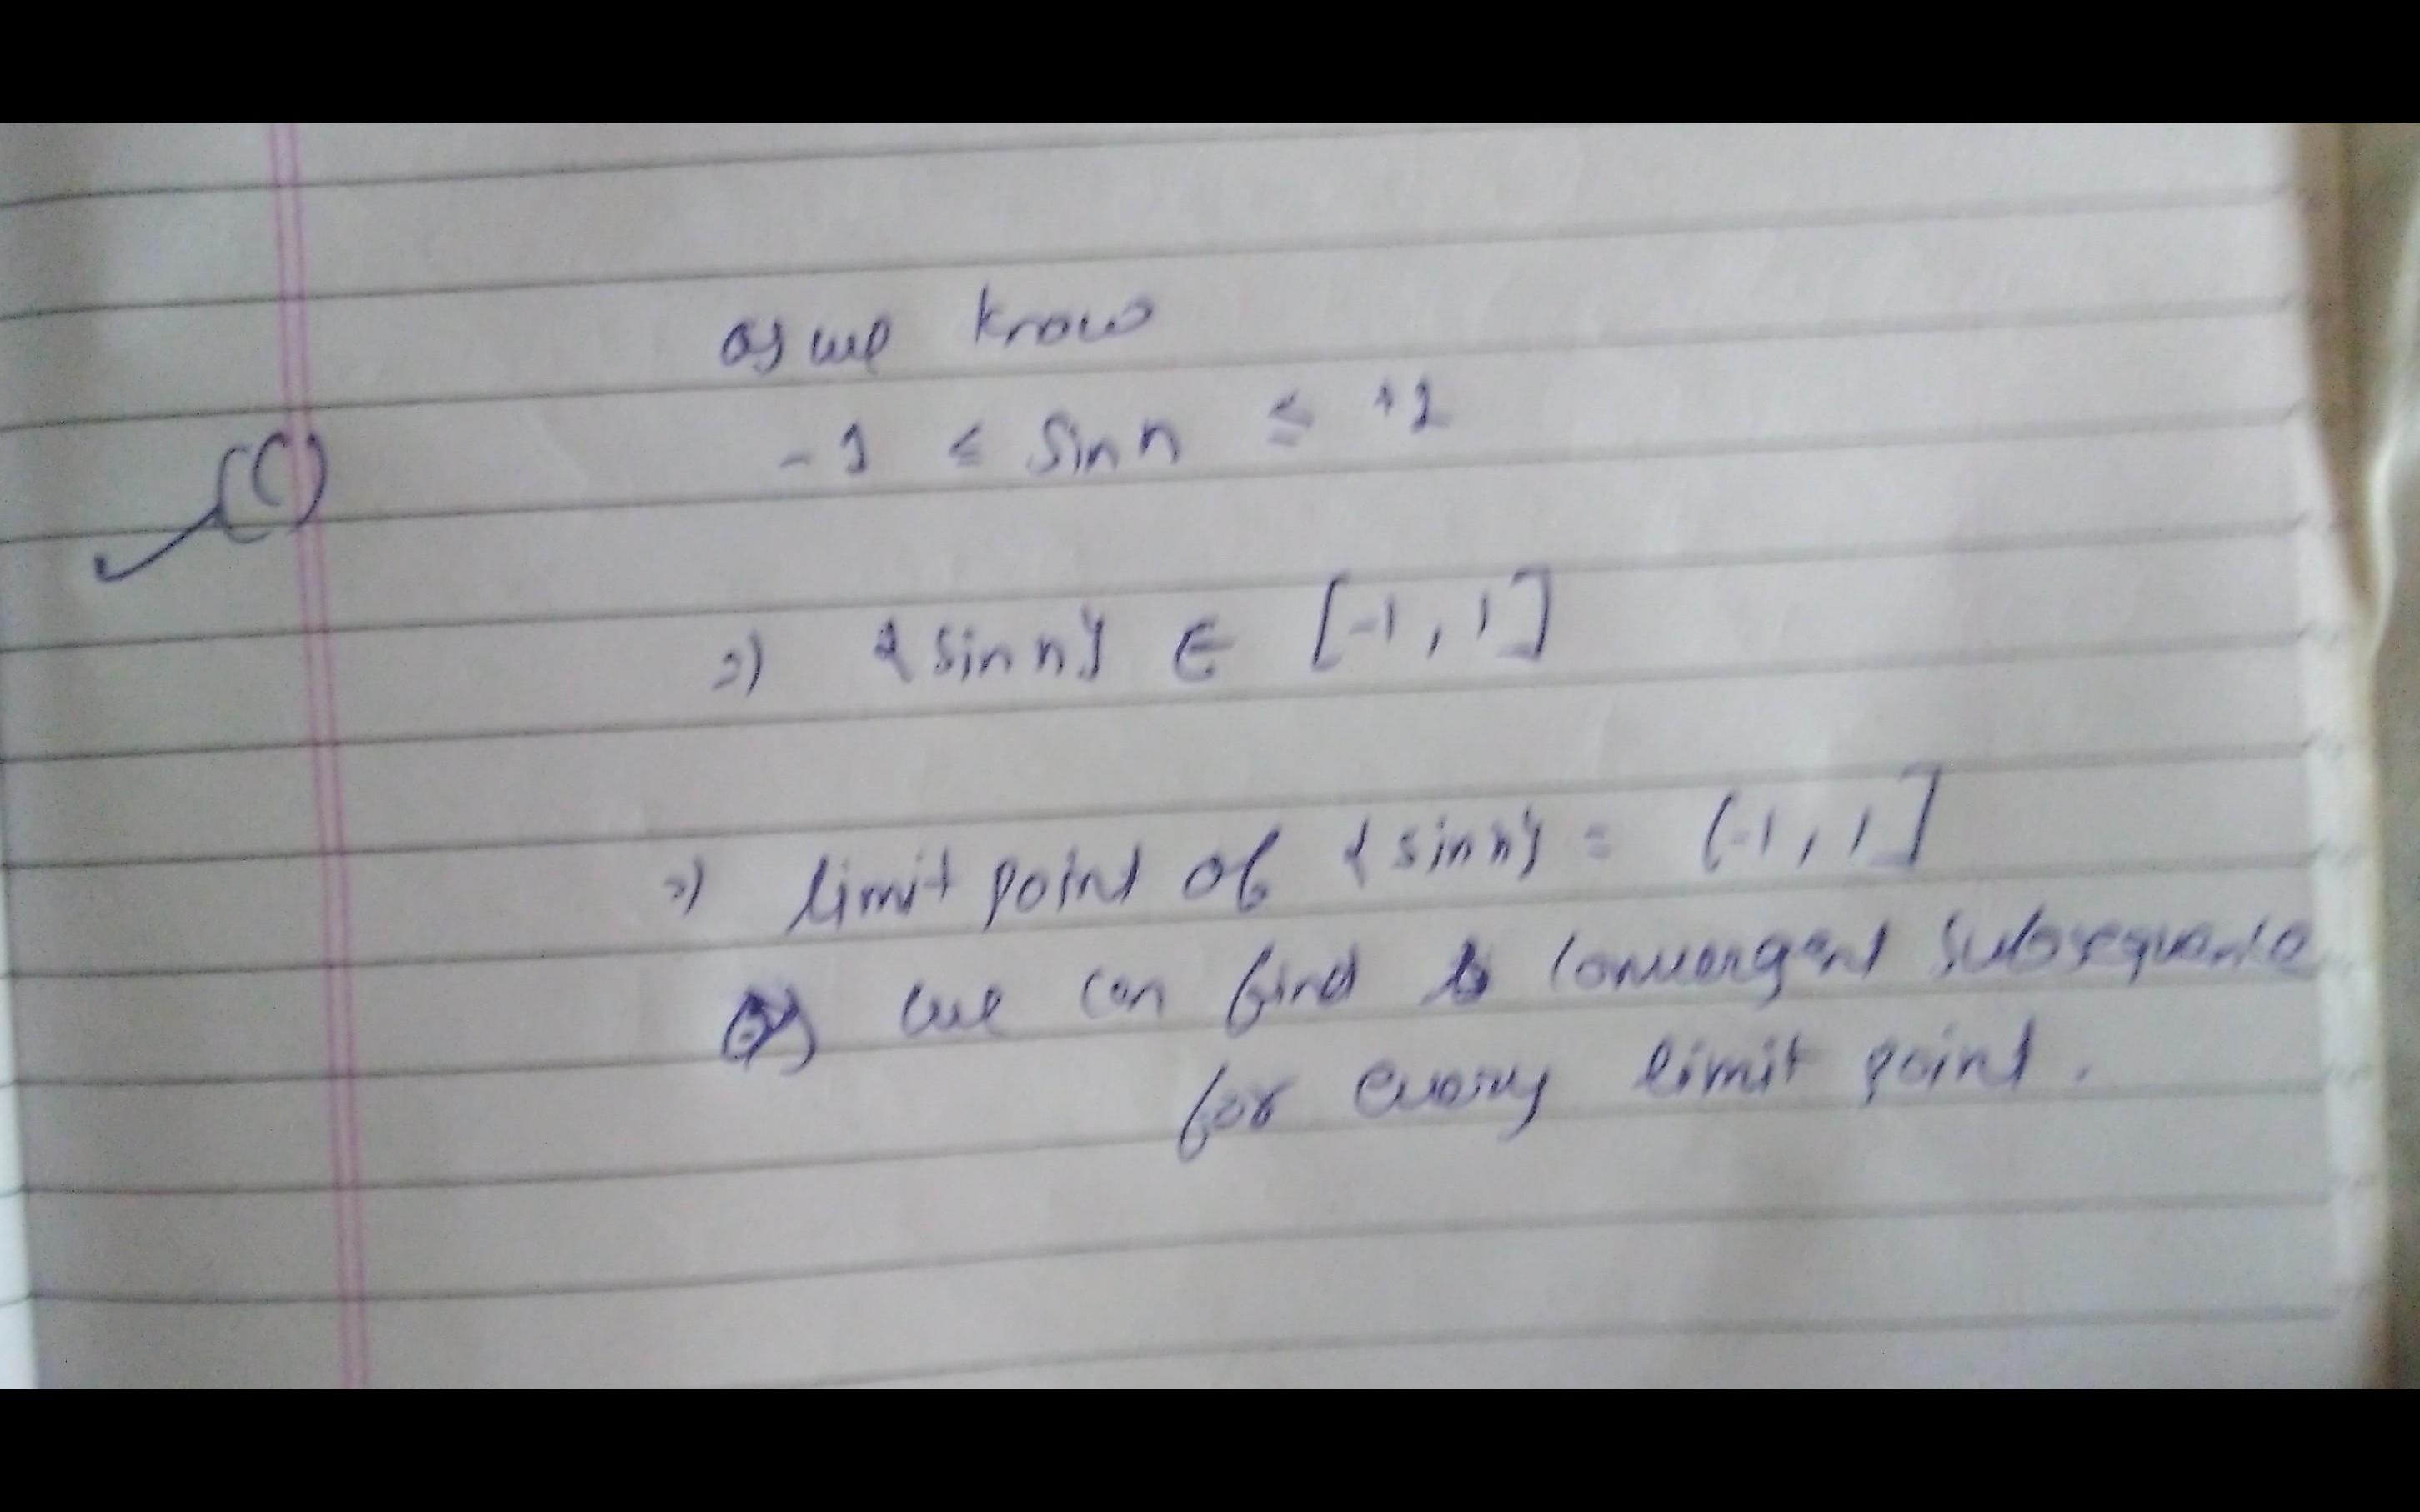 as we know
(C) -1 ≤ Sin n ≤ +1
=) {sin n} ∈ [-1, 1]
=) limit point of {sin n} = [-1, 1]
as we can find convergent subsequence
for every limit point.